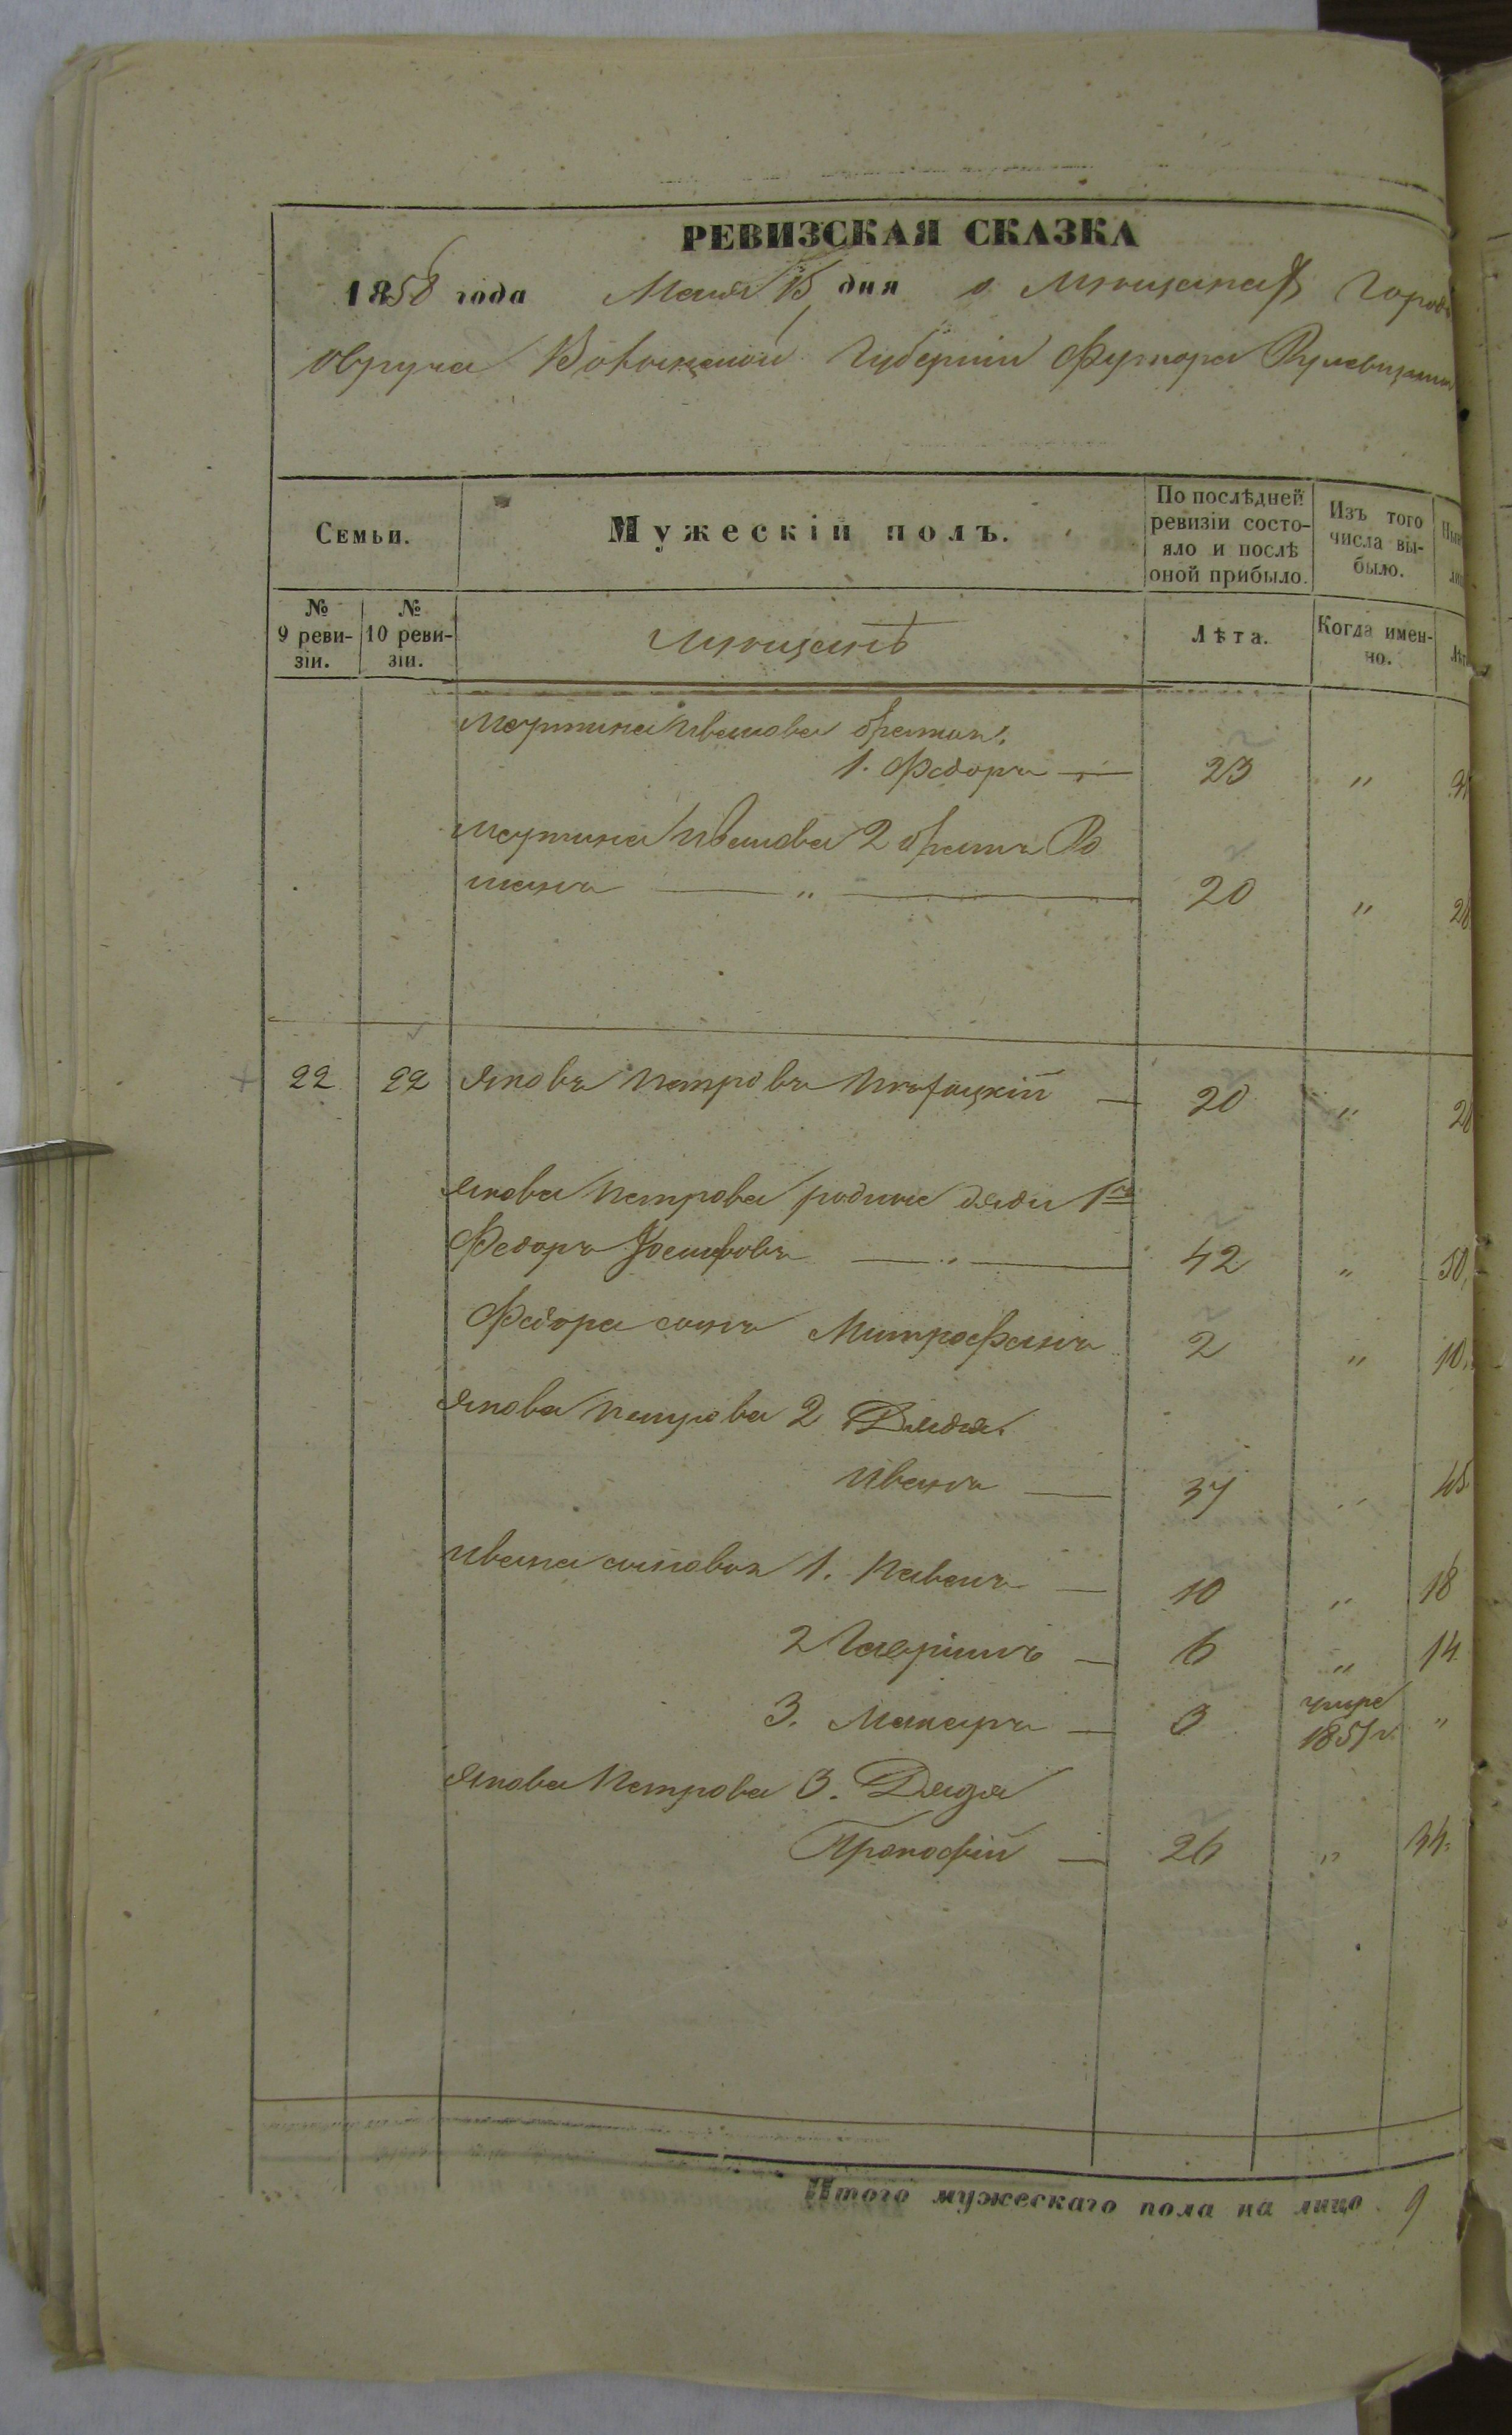 РЕВИЗСКАЯ СКАЗКА
1858 года Маия 15 дня о мѣщанахъ Города
Овруча Волынской Губерніи Футора
Семьи.
Мужескій полъ.
По послѣдней ревизіи состояло и послѣ оной прибыло.
Изъ того числа выбыло.
№ 9 ревизіи.
№ 10 ревизіи.
мѣщанъ
Лѣта.
Когда именно.
Мартина Иванова братья:
1. Федоръ — 23 „
Мартина Иванова 2 братъ Ро
манъ — „ — 20 „ 28
22 22 Яковъ Петровъ — 20 „ 28
Якова Петрова родные дяди 1й
Федоръ Іосифовъ — „ — 42 „ 50
Федора сынъ Митрофанъ 2 „ 10
Якова Петрова 2 Дядя.
Иванъ — 37 „ 45
Ивана сыновья 1. Павелъ — 10 „ 18
2 Гавріилъ — 6 „ 14
3. Макаръ — 3 умре 1851 г. „
Якова Петрова 3. Дядя
Прокофій — 26 „ 34.
Итого мужескаго пола на лицо 9